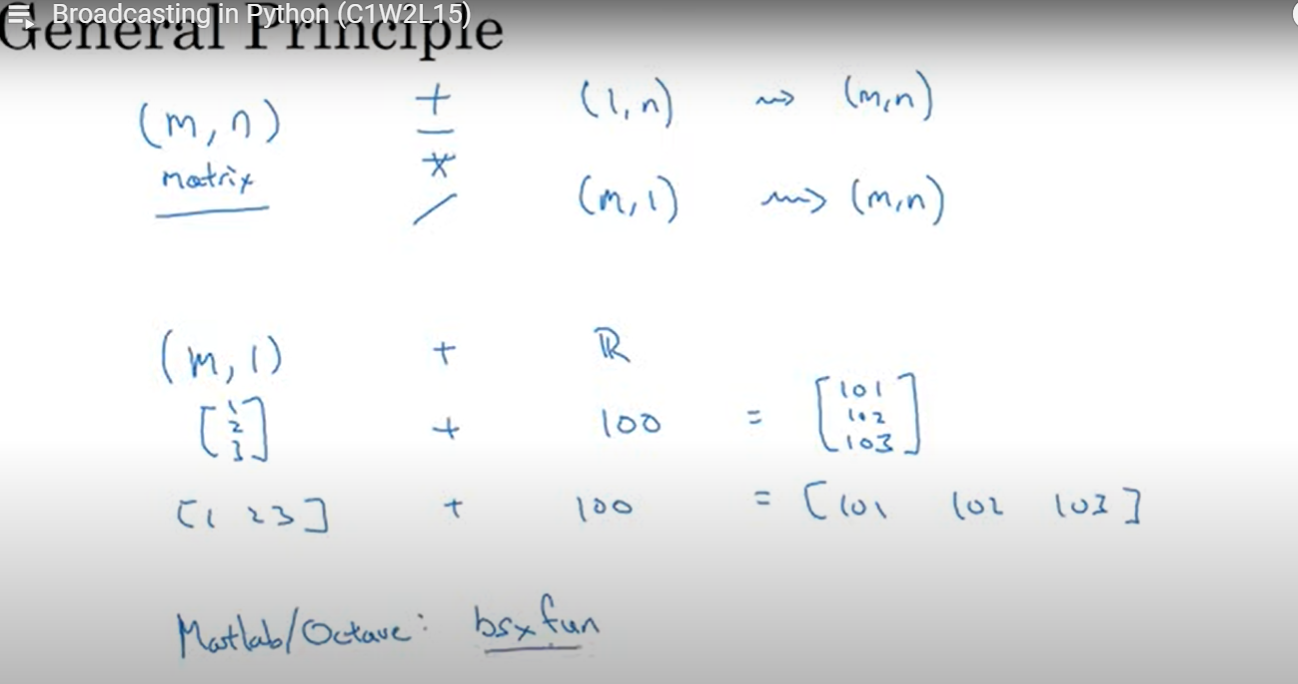 Broadcasting in Python (C1W2L15)
General Principle
(m, n) + (1, n) ⇝ (m, n)
matrix - *
/ (m, 1) ⇝ (m, n)
(m, 1) + ℝ
[1 2 3] + 100 = [101 102 103]
[1 2 3] + 100 = [101 102 103]
Matlab/Octave: bsxfun